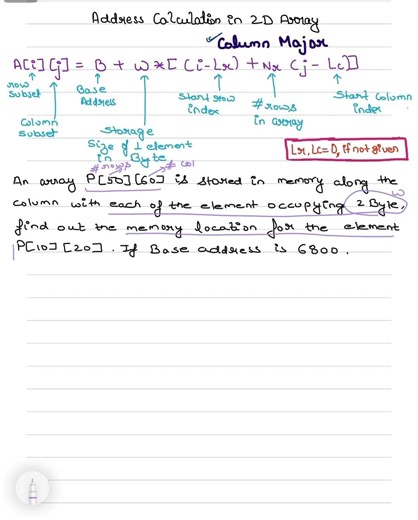 Address Calculation in 2D Array
✓Column Major
A[i][j] = B + W*[(i-Lr) + Nr (j-Lc)]
row subset
Column subset
Base Address
Storage Size of 1 element in Byte
Start row index
# rows in array
Start Column index
Lr, Lc = 0, if not given
# rows # col
An array P[50][60] is stored in memory along the
W
column with each of the element occupying 2 Byte,
find out the memory location for the element
P[10][20]. If Base address is 6800.